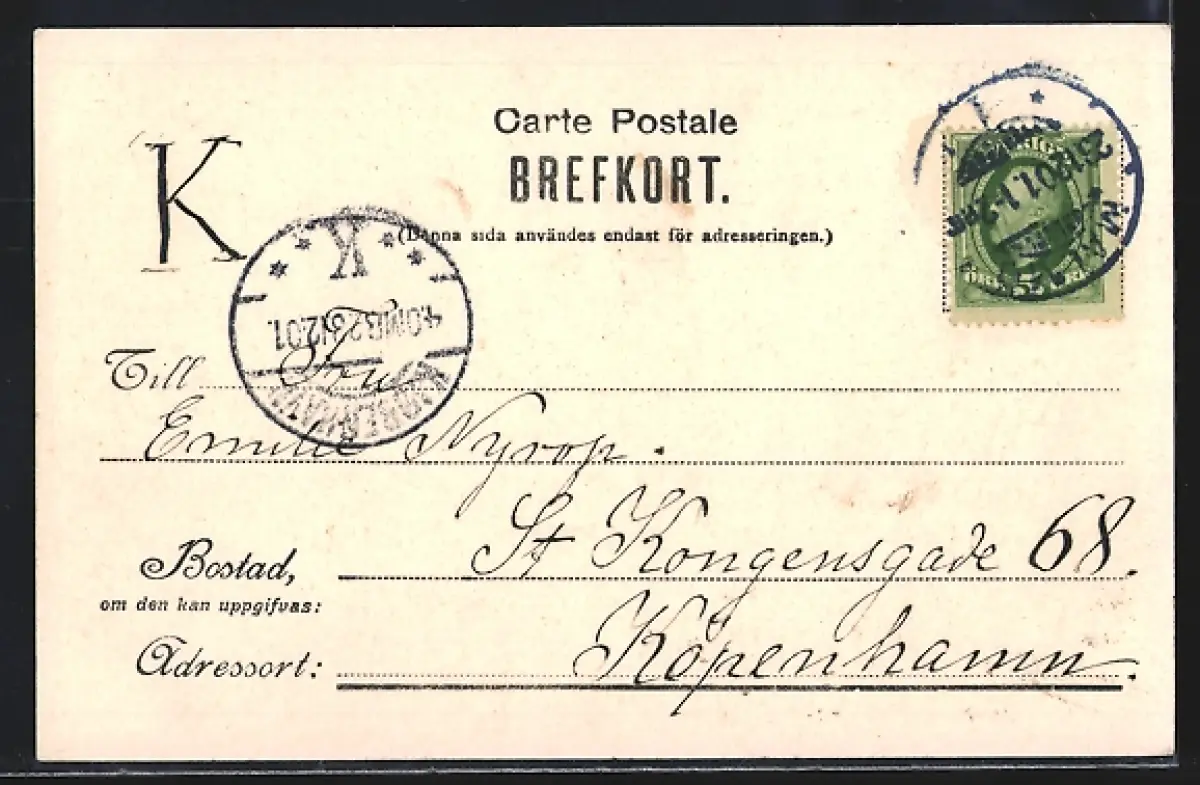 Carte Postale
BREFKORT.
(Denna sida användes endast för adresseringen.)
K
K
4.OMB 23 12 01.
KJØBENHAVN
23 12 01
MALMÖ
SVERIGE
5
Till Fru
Emilie Nyrop.
Bostad,
om den kan uppgifvas:
St Kongensgade 68.
Adressort:
Köpenhamn.